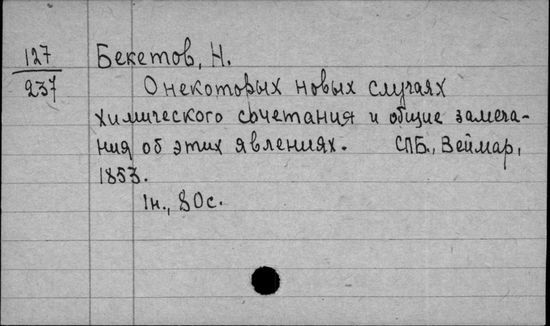 127
237
Бекетов, Н.
О некоторых новых случаях
химического сочетания и общие замеча-
ния об этих явлениях. СПБ., Веймар,
1853.
1н., 80с.